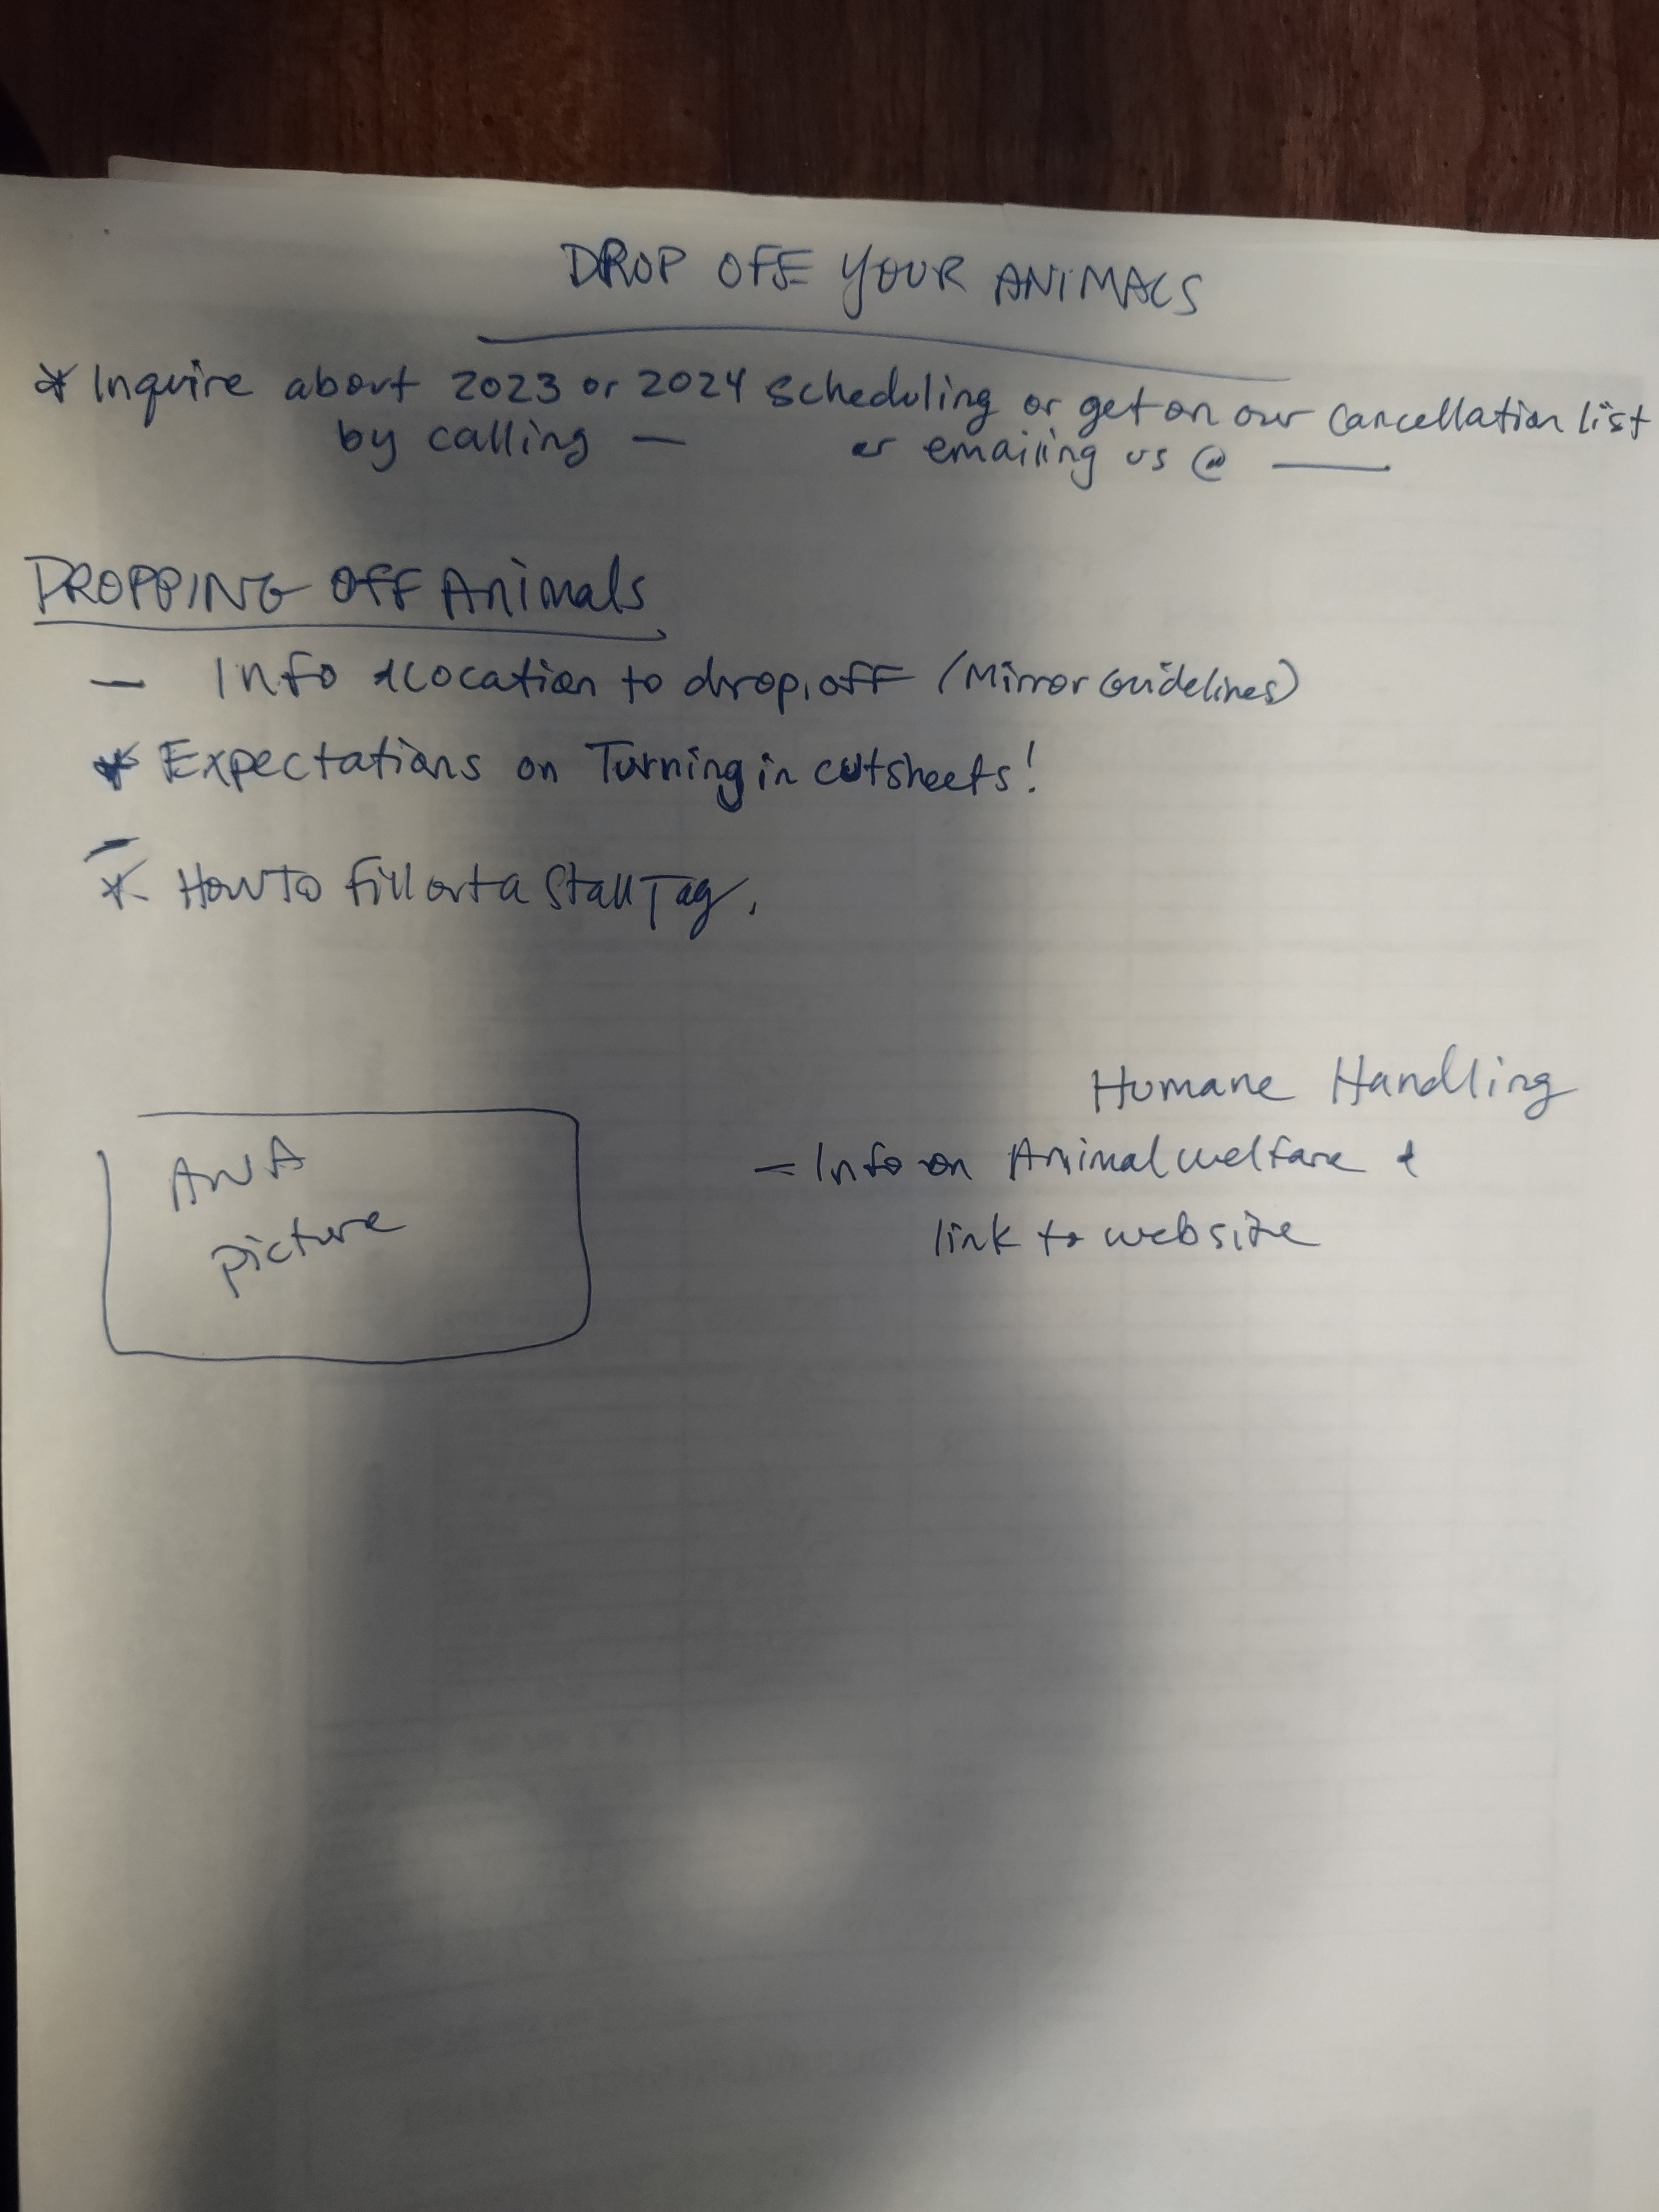 DROP OFF YOUR ANIMALS
* Inquire about 2023 or 2024 scheduling or get on our cancellation list
by calling — or emailing us @ ——
DROPPING OFF Animals
— Info & Location to drop off (Mirror Guidelines)
* Expectations on Turning in cutsheets!
* How To fill out a Stall Tag.
Humane Handling
AWA
picture
— Info on Animal welfare &
link to website